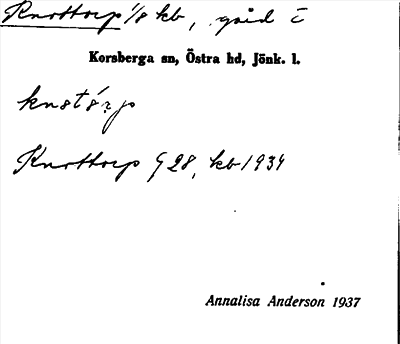 Knottorp 1/8 kb, gård i
Korsberga sn, Östra hd, Jönk. l.
knstórp
Knottorp G 28, kb 1934
Annalisa Anderson 1937